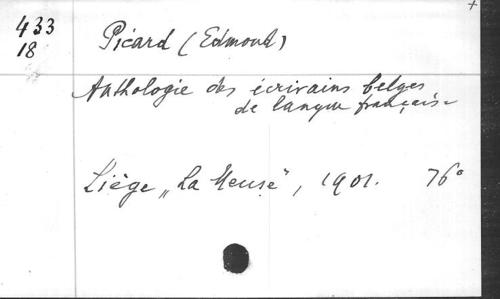 433
18
Picard (Edmond)
Anthologie des écrivains belges
de langue française
Liège „La Meuse", 1901. 76°